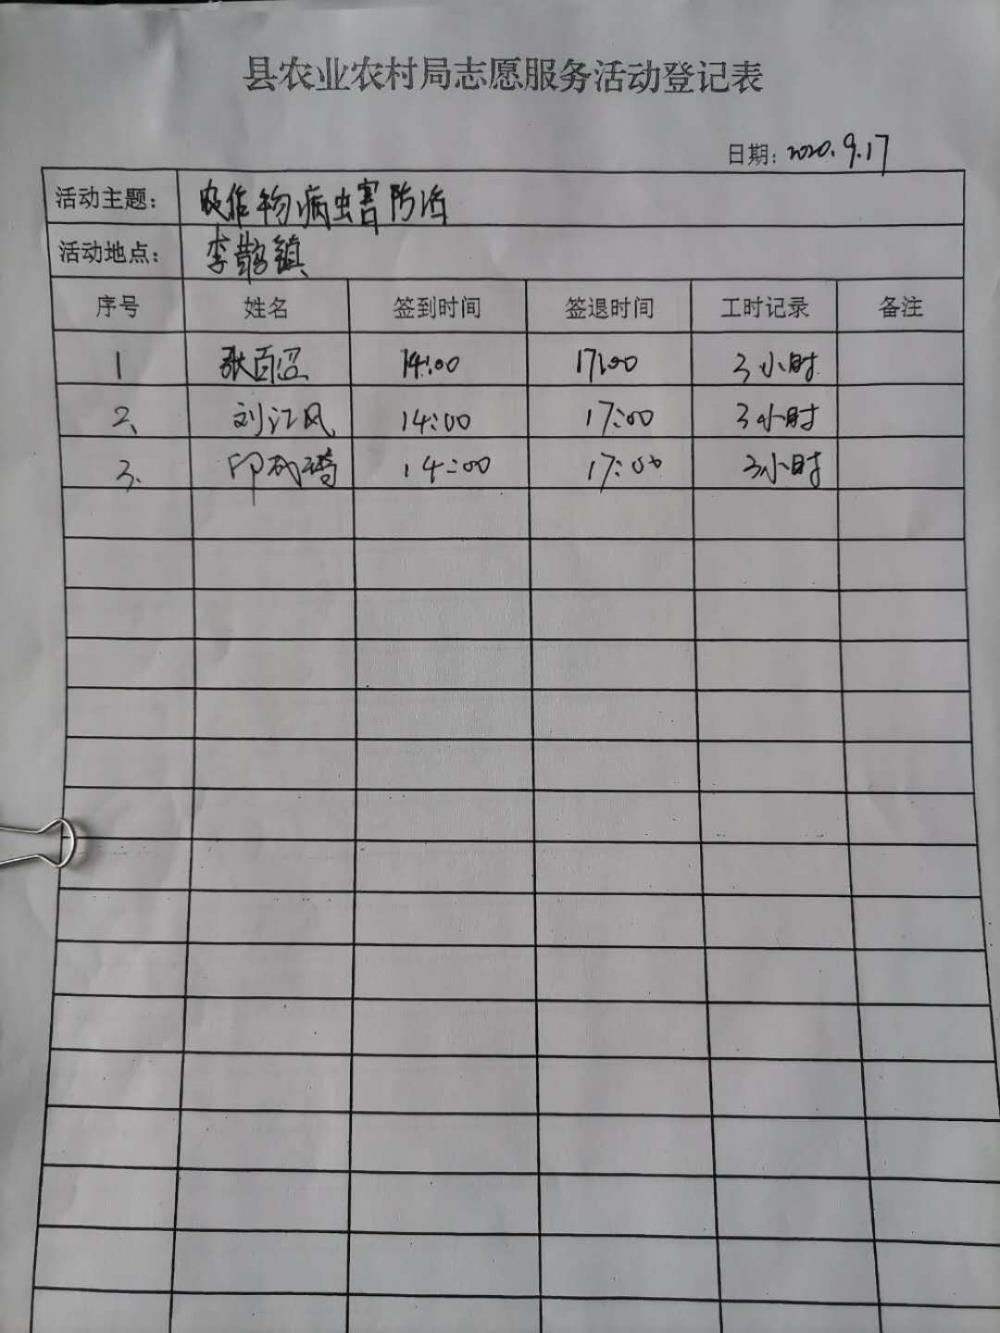 县农业农村局志愿服务活动登记表
日期: 2020.9.17
活动主题: 农作物病虫害防治
活动地点: 李鹊镇
序号 姓名 签到时间 签退时间 工时记录 备注
1 张百 14:00 17:00 3小时
2、 刘江风 14:00 17:00 3小时
3、 印 14:00 17:00 3小时